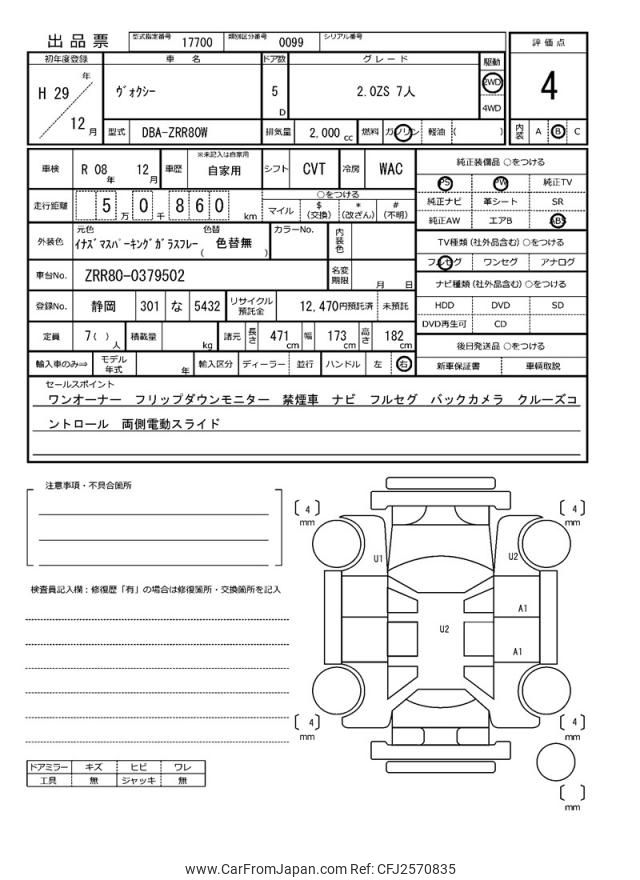 出品票 型式指定番号 17700 類別区分番号 0099 シリアル番号
評価点
4
内装 A B C
初年度登録 車名 ドア数 グレード 駆動
H 29 年 12 月 ヴォクシー 5 D 2.0ZS 7人 2WD 4WD
型式 DBA-ZRR80W 排気量 2,000 cc 燃料 ガソリン 軽油 ( )
車検 R 08 年 12 月 車歴 ※未記入は自家用 自家用 シフト CVT 冷房 WAC
走行距離 5 万 0 千 8 6 0 km ○をつける
マイル $ (交換) * (改ざん) # (不明)
外装色 元色 色替 カラーNo. 内装色
イナズマスパーキングガラスフレー ( 色替無 )
車台No. ZRR80-0379502 名変期限 月 日
登録No. 静岡 301 な 5432 リサイクル預託金 12,470円預託済 未預託
定員 7( ) 人 積載量 kg 諸元 長さ 471 cm 幅 173 cm 高さ 182 cm
輸入車のみ⇨ モデル年式 年 輸入区分 ディーラー 並行 ハンドル 左 右
純正装備品 ○をつける
PS PW 純正TV
純正ナビ 革シート SR
純正AW エアB ABS
TV種類(社外品含む)○をつける
フルセグ ワンセグ アナログ
ナビ種類(社外品含む)○をつける
HDD DVD SD
DVD再生可 CD
後日発送品 ○をつける
新車保証書 車輌取説
セールスポイント
ワンオーナー フリップダウンモニター 禁煙車 ナビ フルセグ バックカメラ クルーズコ
ントロール 両側電動スライド
注意事項・不具合箇所
検査員記入欄:修復歴「有」の場合は修復箇所・交換箇所を記入
ドアミラー キズ ヒビ ワレ
工具 無 ジャッキ 無
[ 4 ] mm [ 4 ] mm
U1 U2
A1
U2
A1
[ 4 ] mm [ 4 ] mm
[ ] mm
www.CarFromJapan.com Ref: CFJ2570835